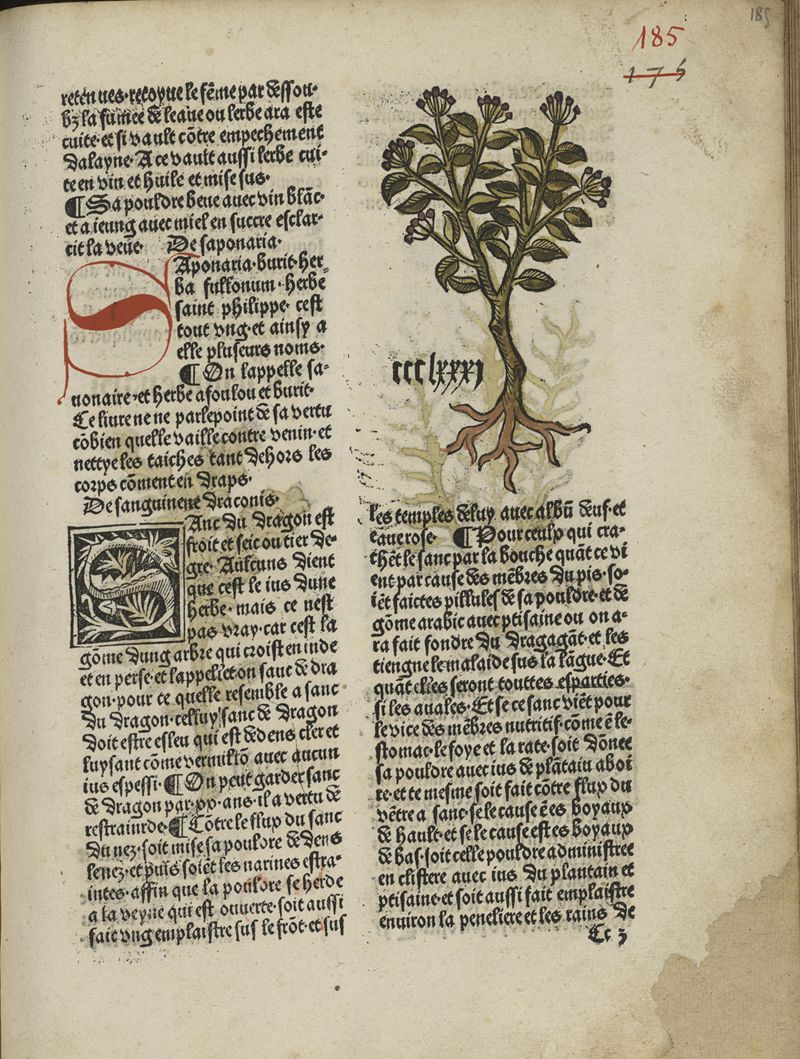 185
185
175
retenues·recoyue le fēme par dessou-
bz la fumee de leaue ou lerbe ara este
cuite·et si vault cōtre empechement
dalayne·A ce vault aussi lerbe cui-
te en vin et huile et mise sus·
¶Sa pouldre beue auec vin blāc·
et a ieung auec miel en succre esclar-
cit la veue· De saponaria·
SAponaria·burit·her-
ba fullonum·herbe
saint philippe· cest
tout vng·et ainsy a
elle pluseurs noms·
¶On lappelle sa-
uonaire·et herbe a foulou et burit·
Ce liure ne ne parle point de sa vertu
cōbien quelle vaille contre venin·et
nettye les taiches tant dehors les
corps cōment en draps·
De sanguinene draconis·
SAnc du dragon est
froit et seic ou tier de-
gre· Aulcuns dient
que cest le ius dune
herbe· mais ce nest
pas vray·car cest la
gōme dung arbre qui croist en inde
et en perse·et lappellet on sanc de dra
gon·pour ce quelle resemble a sanc
du dragon·celluy sanc de dragon
doit estre esleu qui est dedens cler et
luysant cōme vermillō auec aucun
ius espessi·¶On peut garder sanc
de dragon par·xx·ans·il a vertu de
restraindre·¶Cōtre le flux du sanc
du nez·soit mise sa pouldre dedens
le nez·et puis soiēt les narines estra-
intes·affin que la pouldre se herde
a la veyne qui est ouuerte·soit aussi
fait vng emplaistre sus le frōt·et sus
ccclxxxj
les temples de luy auec albū deuf·et
eaue rose· ¶Pour ceulx qui cra-
chēt le sanc par la bouche quāt ce vi
ent par cause des mēbres du pis·so-
iēt faictes pillules de sa pouldre·et de
gōme arabic auec ptisaine ou on a-
ra fait fondre du dragagāt·et les
tiengne le malaide sus la lāgue·Et
quāt elles seront touttes esparties·
si les auales·Et se ce sanc viēt pour
le vice des mēbres nutritif·cōme ē le-
stomac·le foye et la rate·soit dōnee
sa pouldre auec ius de plātain a boi
re·et te mesme soit fait cōtre flux du
vētre a sanc·se le cause ē es boyaux
de hault·et se le cause est es boyaux
de bas·soit celle pouldre administree
en clistere auec ius du plantain et
ptisaine·et soit aussi fait emplaistre
enuiron la peneliere et les rains de
Cc 3